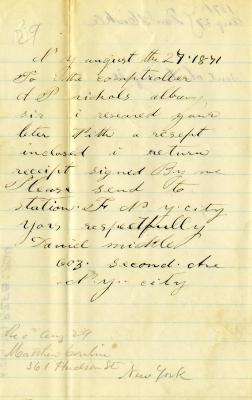 N y august the 27 1871
To the comptroller
nichols albany
sir i reseved your
leter With a resept
inclosed i return
receipt signed By me
Please send to
station F N y city
yors respectfully
Daniel mickle
603 second ave
N y city
Aug 29
Matthew
361 Hudson St
New York